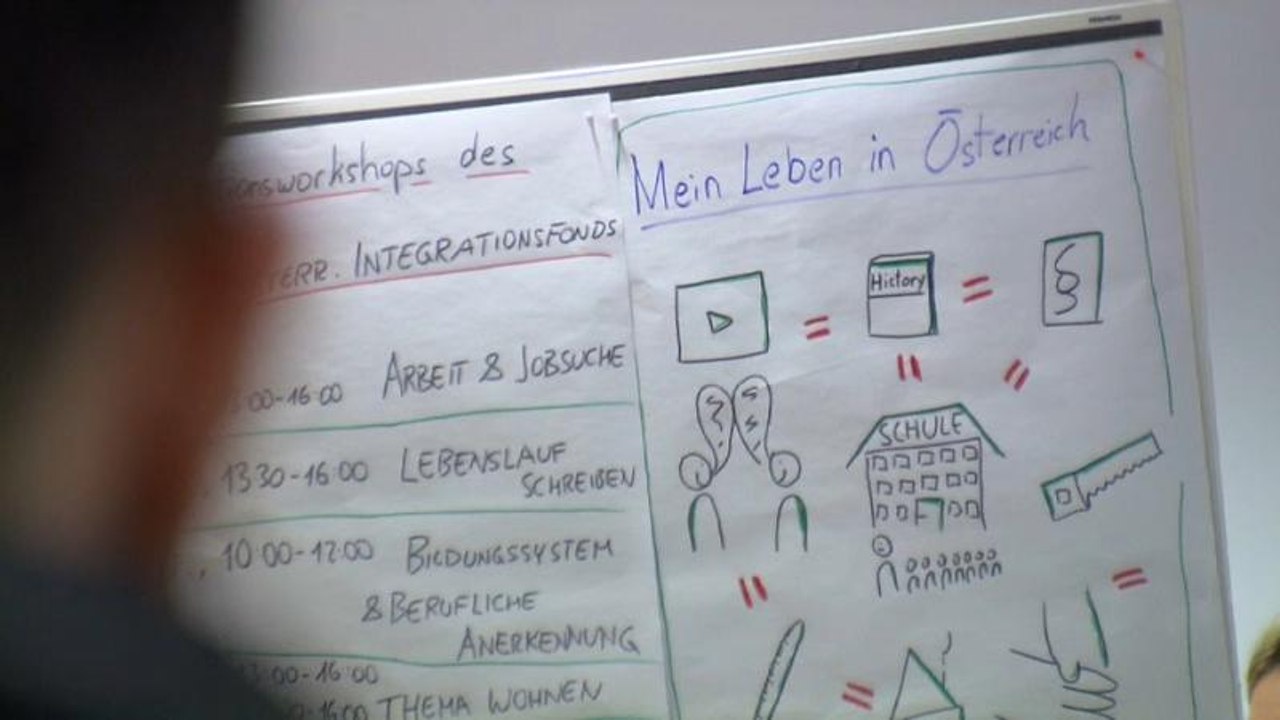 des
INTEGRATIONSFONDS
ARBEIT & JOBSUCHE
13 30-16:00 LEBENSLAUF
SCHREIBEN
10:00-12:00 BILDUNGSSYSTEM
& BERUFLICHE
ANERKENNUNG
THEMA WOHNEN
Mein Leben in Österreich
History
§
SCHULE